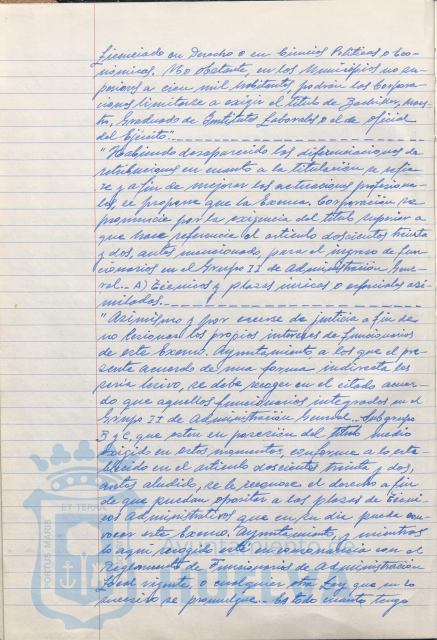 Licenciado en Derecho o en Ciencias Políticas o Eco-
nómicas. No obstante, en los Municipios no su-
periores a cien mil habitantes, podrán las Corpora-
ciones limitarse a exigir el título de Bachiller, Maes-
tro, Graduado de Institutos Laborales o el de oficial
del Ejército".
"Habiendo desaparecido las diferenciaciones de
retribuciones en cuanto a la titulación se refie-
re y a fin de mejorar las actuaciones profesiona-
les, se propone que la Excma. Corporación se
pronuncie por la exigencia del título superior a
que hace referencia el artículo doscientos treinta
y dos, antes mencionado, para el ingreso de fun-
cionarios en el Grupo II de Administración Gene-
ral.. A) Técnicos y plazas únicas o especiales asi-
miladas.
"Asimismo y por creerse de justicia a fin de
no lesionar los propios intereses de funcionarios
de este Excmo. Ayuntamiento a los que el pre-
sente acuerdo de una forma indirecta les
sería lesivo, se debe recoger en el citado acuer-
do que aquellos funcionarios integrados en el
Grupo II de Administración General.. Subgrupo
B y C, que estén en posesión del título medio
exigido en estos momentos, conforme a lo esta-
blecido en el artículo doscientos treinta y dos,
antes aludido, se le reconoce el derecho a fin
de que puedan opositar a las plazas de Técni-
cos Administrativos que en su día pueda con-
vocar este Excmo. Ayuntamiento, y mientras
lo aquí recogido esté en consonancia con el
Reglamento de Funcionarios de Administración
Local vigente o cualquier otra Ley que en lo
sucesivo se promulgue.. Es todo cuanto tengo
ET TERRA
PORTUS MARIS